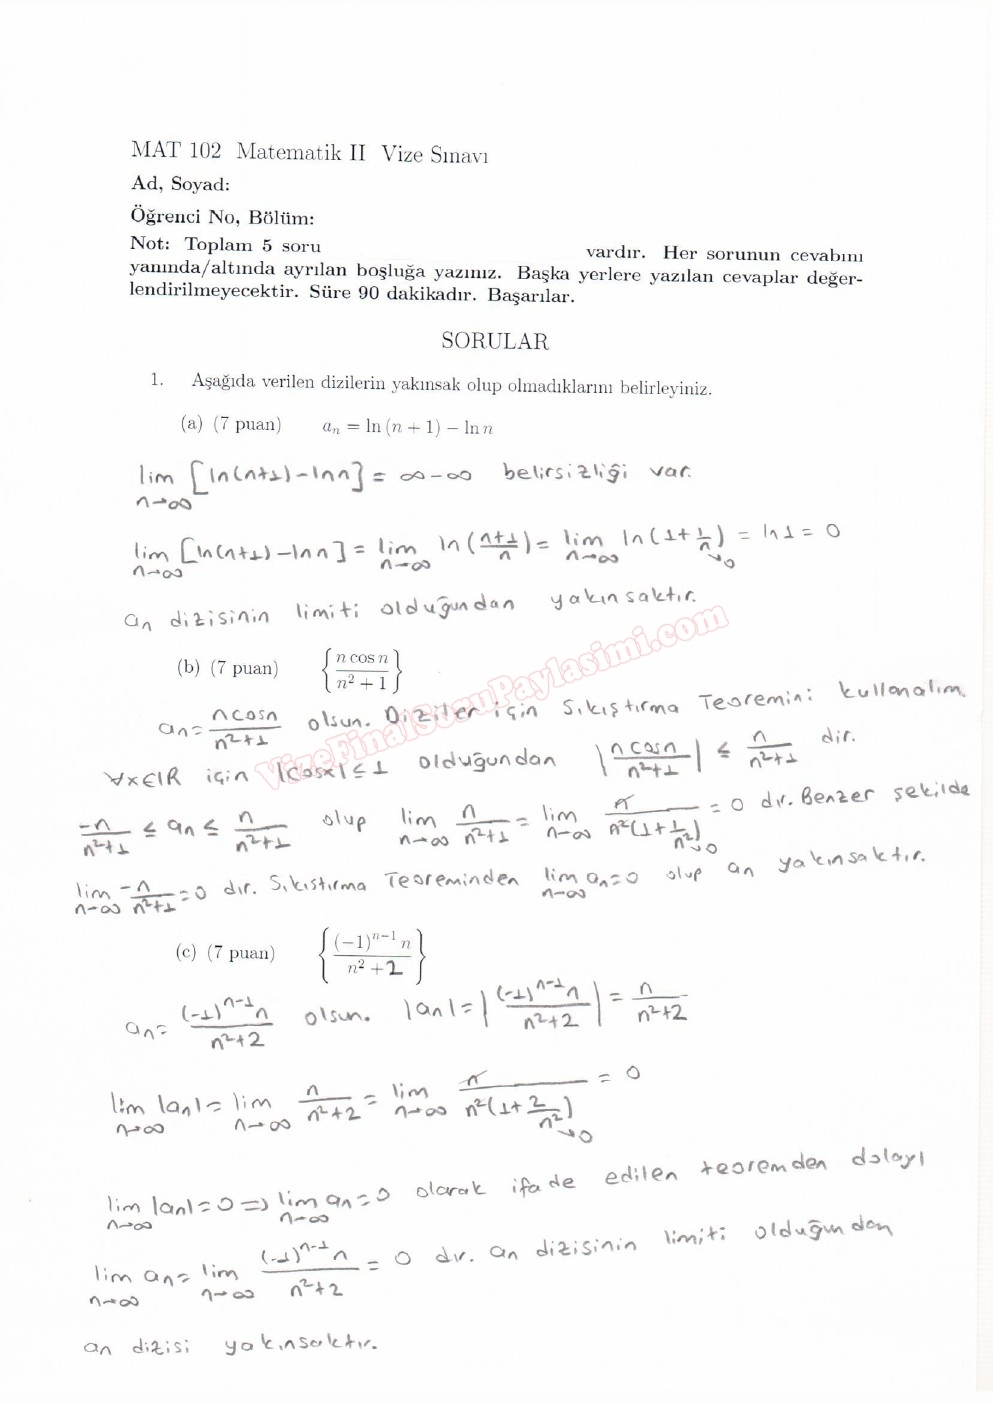 MAT 102 Matematik II Vize Sınavı
Ad, Soyad:
Öğrenci No, Bölüm:
Not: Toplam 5 soru vardır. Her sorunun cevabını
yanında/altında ayrılan boşluğa yazınız. Başka yerlere yazılan cevaplar değer-
lendirilmeyecektir. Süre 90 dakikadır. Başarılar.
SORULAR
1. Aşağıda verilen dizilerin yakınsak olup olmadıklarını belirleyiniz.
(a) (7 puan) aₙ = ln (n + 1) − ln n
lim n→∞ [ln(n+1)-ln n] = ∞-∞ belirsizliği var.
lim n→∞ [ln(n+1)-ln n] = lim n→∞ ln((n+1)/n) = lim n→∞ ln(1+1/n) →0 = ln1 = 0
an dizisinin limiti olduğundan yakınsaktır.
VizeFinalSoruPaylasimi.com
(b) (7 puan) {n cos n / n² + 1}
an = ncosn/(n²+1) olsun. Diziler için Sıkıştırma Teoremini kullanalım.
∀x∈IR için |cosx| ≤ 1 olduğundan |ncosn/(n²+1)| ≤ n/(n²+1) dir.
-n/(n²+1) ≤ an ≤ n/(n²+1) olup lim n→∞ n/(n²+1) = lim n→∞ n/(n²(1+1/n²)) →0 = 0 dır. Benzer şekilde
lim n→∞ -n/(n²+1) = 0 dır. Sıkıştırma Teoreminden lim n→∞ an=0 olup an yakınsaktır.
(c) (7 puan) {(−1)ⁿ⁻¹ n / n² + 2}
an = (-1)ⁿ⁻¹n/(n²+2) olsun. |an| = |(-1)ⁿ⁻¹n/(n²+2)| = n/(n²+2)
lim n→∞ |an| = lim n→∞ n/(n²+2) = lim n→∞ n/(n²(1+2/n²)) →0 = 0
lim n→∞ |an| = 0 ⇒ lim n→∞ an = 0 olarak ifade edilen teoremden dolayı
lim n→∞ an = lim n→∞ (-1)ⁿ⁻¹n/(n²+2) = 0 dır. an dizisinin limiti olduğundan
an dizisi yakınsaktır.